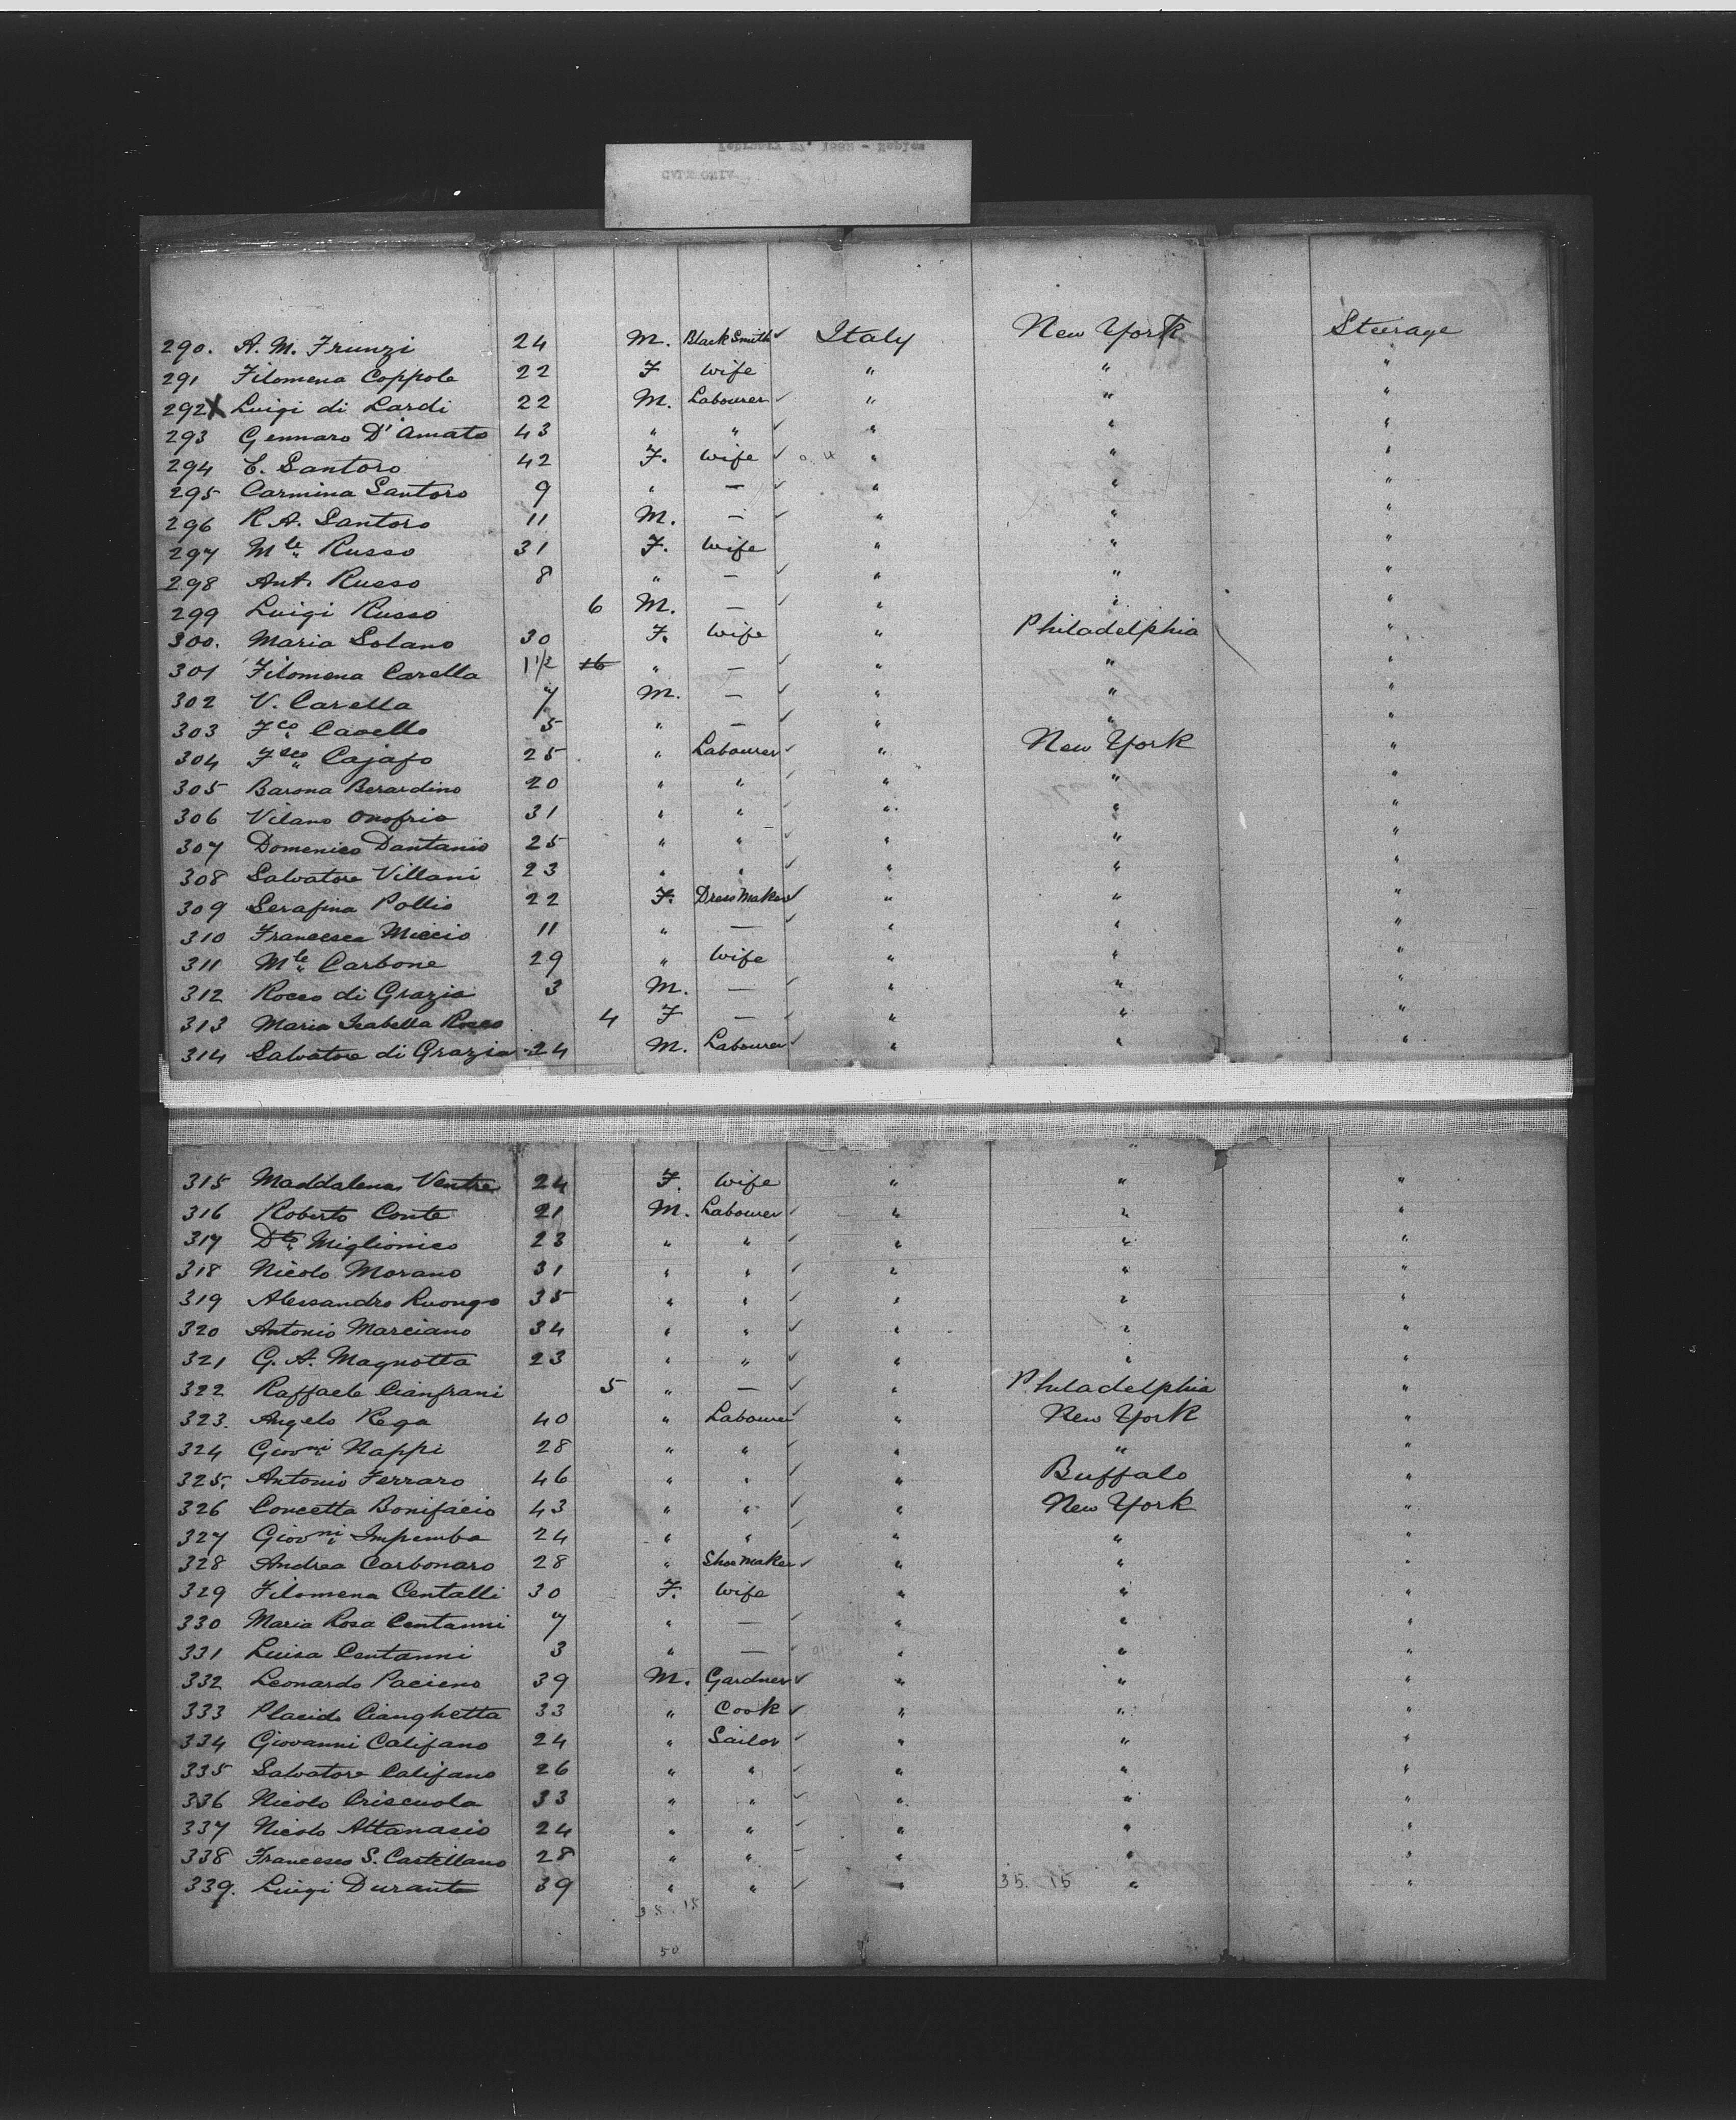 290. A. M. Frunzi 24 M. BlackSmith ✓ Italy New York Steerage
291 Filomena Coppola 22 F Wife " " "
292 X Luigi di Lardi 22 M. Labourer ✓ " " "
293 Gennaro D'Amato 43 " " ✓ " " "
294 C. Santoro 42 F. Wife ✓ " " "
295 Carmina Santoro 9 " — ✓ " " "
296 R. A. Santoro 11 M. — ✓ " " "
297 Mle Russo 31 F. Wife " " "
298 Ant. Russo 8 " — ✓ " " "
299 Luigi Russo 6 M. — ✓ " " "
300. Maria Solano 30 F. Wife " Philadelphia "
301 Filomena Carella 1 1/2 " — ✓ " " "
302 V. Carella 7 M. — ✓ " " "
303 Fco Cavello 5 " — ✓ " " "
304 Fsco Cajafo 25 " Labourer ✓ " New York "
305 Barona Berardino 20 " " ✓ " " "
306 Vilano Onofrio 31 " " ✓ " " "
307 Domenico Dantanio 25 " " ✓ " " "
308 Salvatore Villani 23 " " ✓ " " "
309 Serafina Pollio 22 F. DressMaker ✓ " " "
310 Francesca Miccio 11 " — ✓ " " "
311 Mle Carbone 29 " Wife " " "
312 Rocco di Grazia 3 M. — ✓ " " "
313 Maria Isabella Rocco 4 F — ✓ " " "
314 Salvatore di Grazia 24 M. Labourer ✓ " " "
315 Maddalena Ventre 24 F. Wife " " "
316 Roberto Conte 21 M. Labourer ✓ " " "
317 Miglionico 23 " " ✓ " " "
318 Nicolo Morano 31 " " ✓ " " "
319 Alessandro Ruongo 35 " " ✓ " " "
320 Antonio Marciano 34 " " ✓ " " "
321 G. A. Magnotta 23 " " ✓ " " "
322 Raffaele Cianfrani 5 " — ✓ " Philadelphia "
323. Angelo Rega 40 " Labourer ✓ " New York "
324 Giovni Nappi 28 " " ✓ " " "
325. Antonio Ferraro 46 " " ✓ " Buffalo "
326 Concetta Bonifacio 43 " " ✓ " New York "
327 Giovni Impemba 24 " " ✓ " " "
328 Andrea Carbonaro 28 " ShoeMaker ✓ " " "
329 Filomena Centalli 30 F. Wife " " "
330 Maria Rosa Centanni 7 " — ✓ " " "
331 Luisa Centanni 3 " — ✓ " " "
332 Leonardo Pacieno 39 M. Gardner ✓ " " "
333 Placido Cianghetta 33 " Cook ✓ " " "
334 Giovanni Califano 24 " Sailor ✓ " " "
335 Salvatore Califano 26 " " ✓ " " "
336 Nicolo Criscuola 33 " " ✓ " " "
337 Nicolo Attanasio 24 " " ✓ " " "
338 Francesco S. Castellano 28 " " ✓ " " "
339. Luigi Durante 39 " " ✓ " 35. 15 " "
35. 15
50